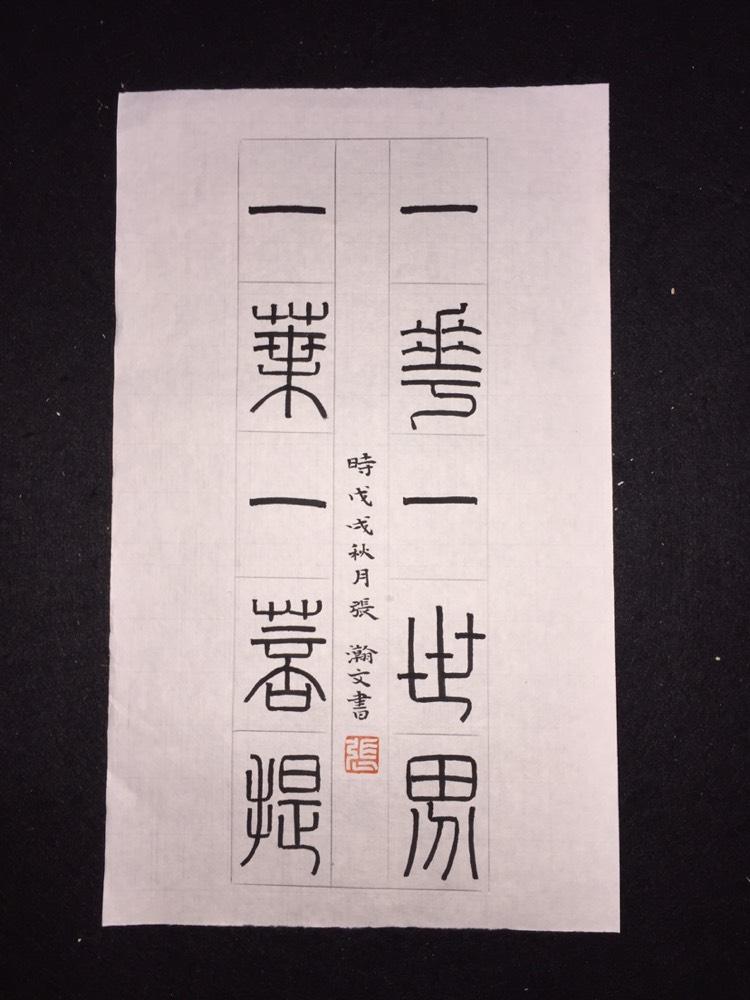 一華一世界
一葉一菩提
時戊戌秋月張瀚文書
張